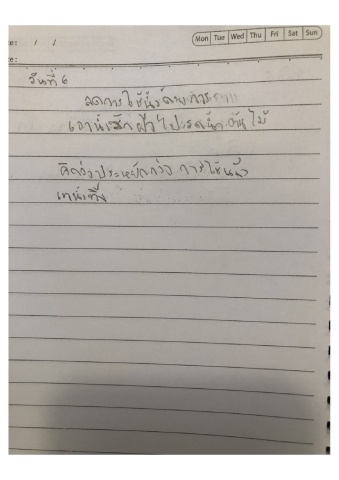 Mon Tue Wed Thu Fri Sat Sun
te: / /
te:
วันที่ 6
ลดการใช้น้ำด้วยการ
เอาน้ำซักผ้าไปรดน้ำต้นไม้
คิดว่าประหยัดกว่า การใช้น้ำ
เททิ้ง